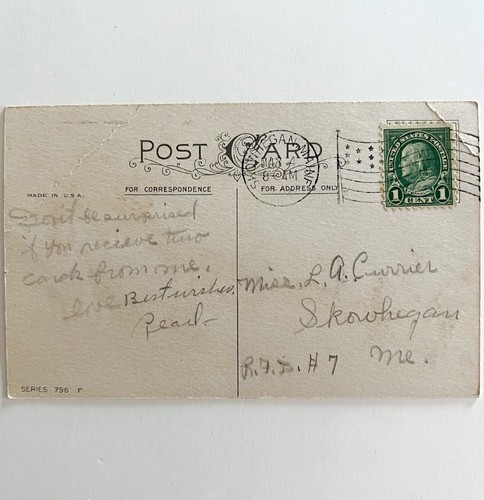 POST CARD
SKOWHEGAN, MAINE
8 AM
UNITED STATES POSTAGE
1 CENT 1
MADE IN U.S.A.
FOR CORRESPONDENCE
FOR ADDRESS ONLY
Don't be surprised
if you recieve two
cards from me.
love Best wishes.
Pearl
Miss. L. A. Currier
Skowhegan
Me.
R.F.D. #7
SERIES 796 F